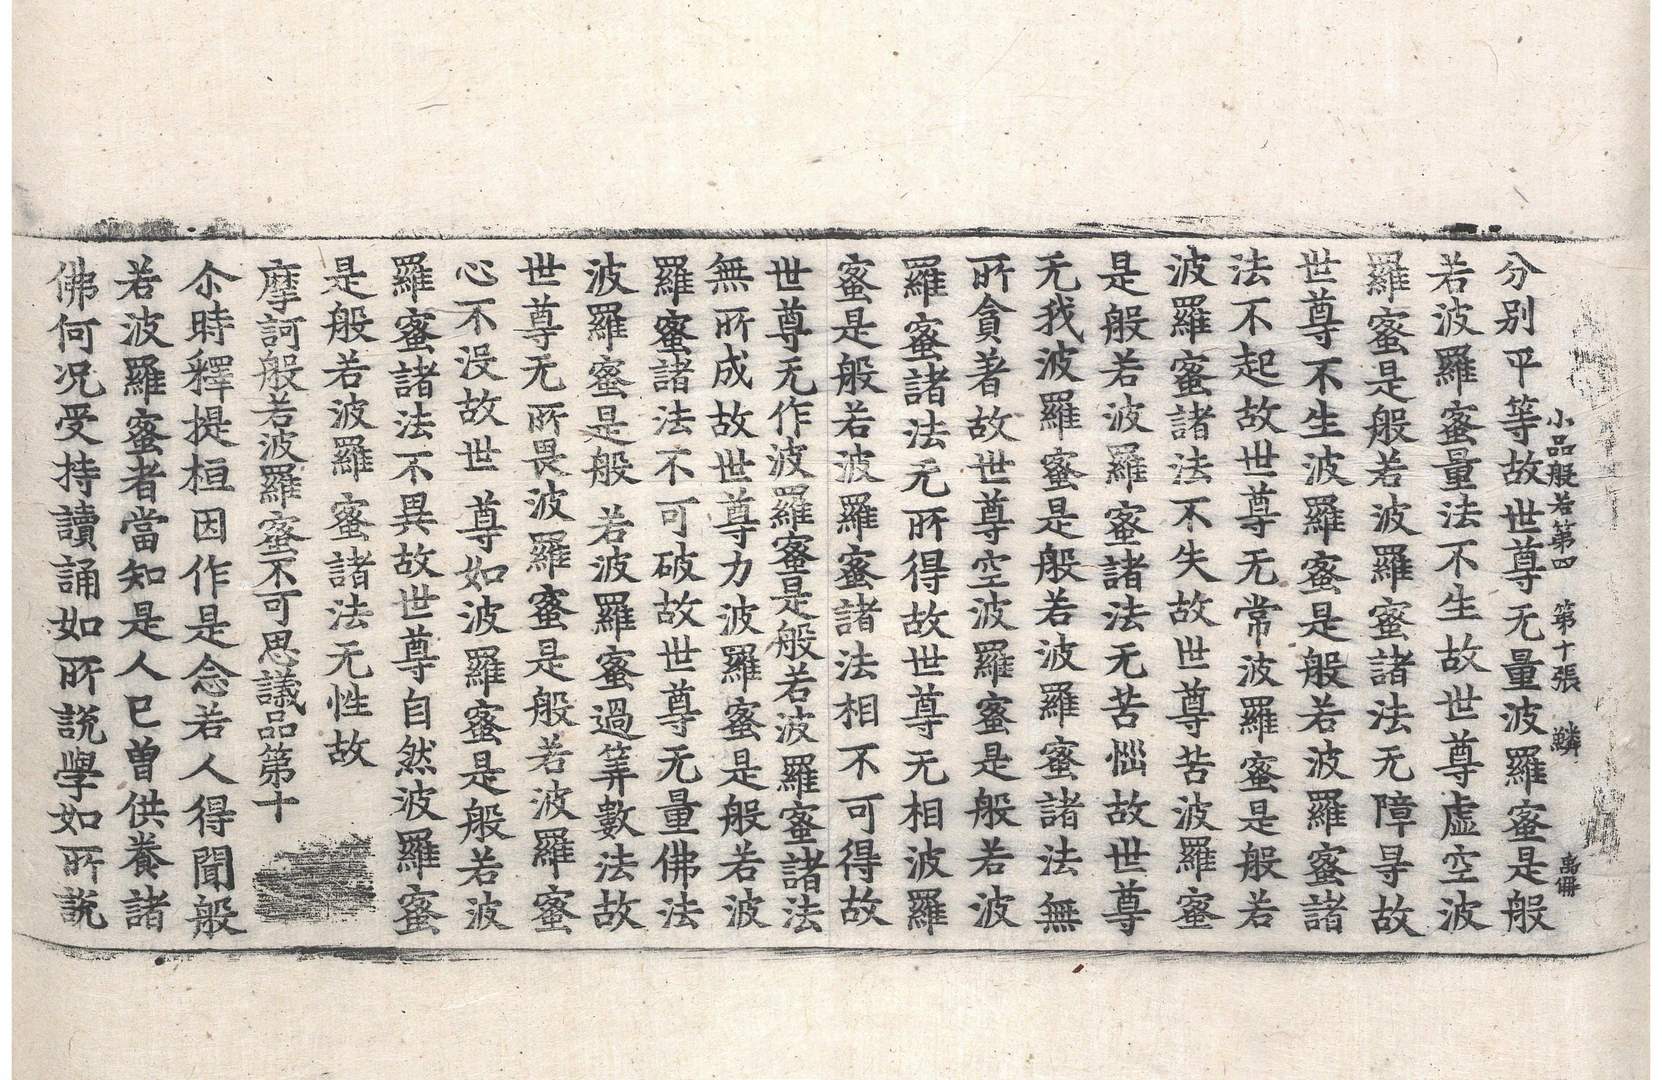 小品般若第四 第十張 鱗
分別平等故世尊无量波羅蜜是般
若波羅蜜量法不生故世尊虛空波
羅蜜是般若波羅蜜諸法无障㝵故
世尊不生波羅蜜是般若波羅蜜諸
法不起故世尊无常波羅蜜是般若
波羅蜜諸法不失故世尊苦波羅蜜
是般若波羅蜜諸法无苦惱故世尊
无我波羅蜜是般若波羅蜜諸法無
所貪著故世尊空波羅蜜是般若波
羅蜜諸法无所得故世尊无相波羅
蜜是般若波羅蜜諸法相不可得故
世尊无作波羅蜜是般若波羅蜜諸法
無所成故世尊力波羅蜜是般若波
羅蜜諸法不可破故世尊无量佛法
波羅蜜是般若波羅蜜過筭數法故
世尊无所畏波羅蜜是般若波羅蜜
心不没故世尊如波羅蜜是般若波
羅蜜諸法不異故世尊自然波羅蜜
是般若波羅蜜諸法无性故
摩訶般若波羅蜜不可思議品第十
尒時釋提桓因作是念若人得聞般
若波羅蜜者當知是人已曾供養諸
佛何况受持讀誦如所說學如所說